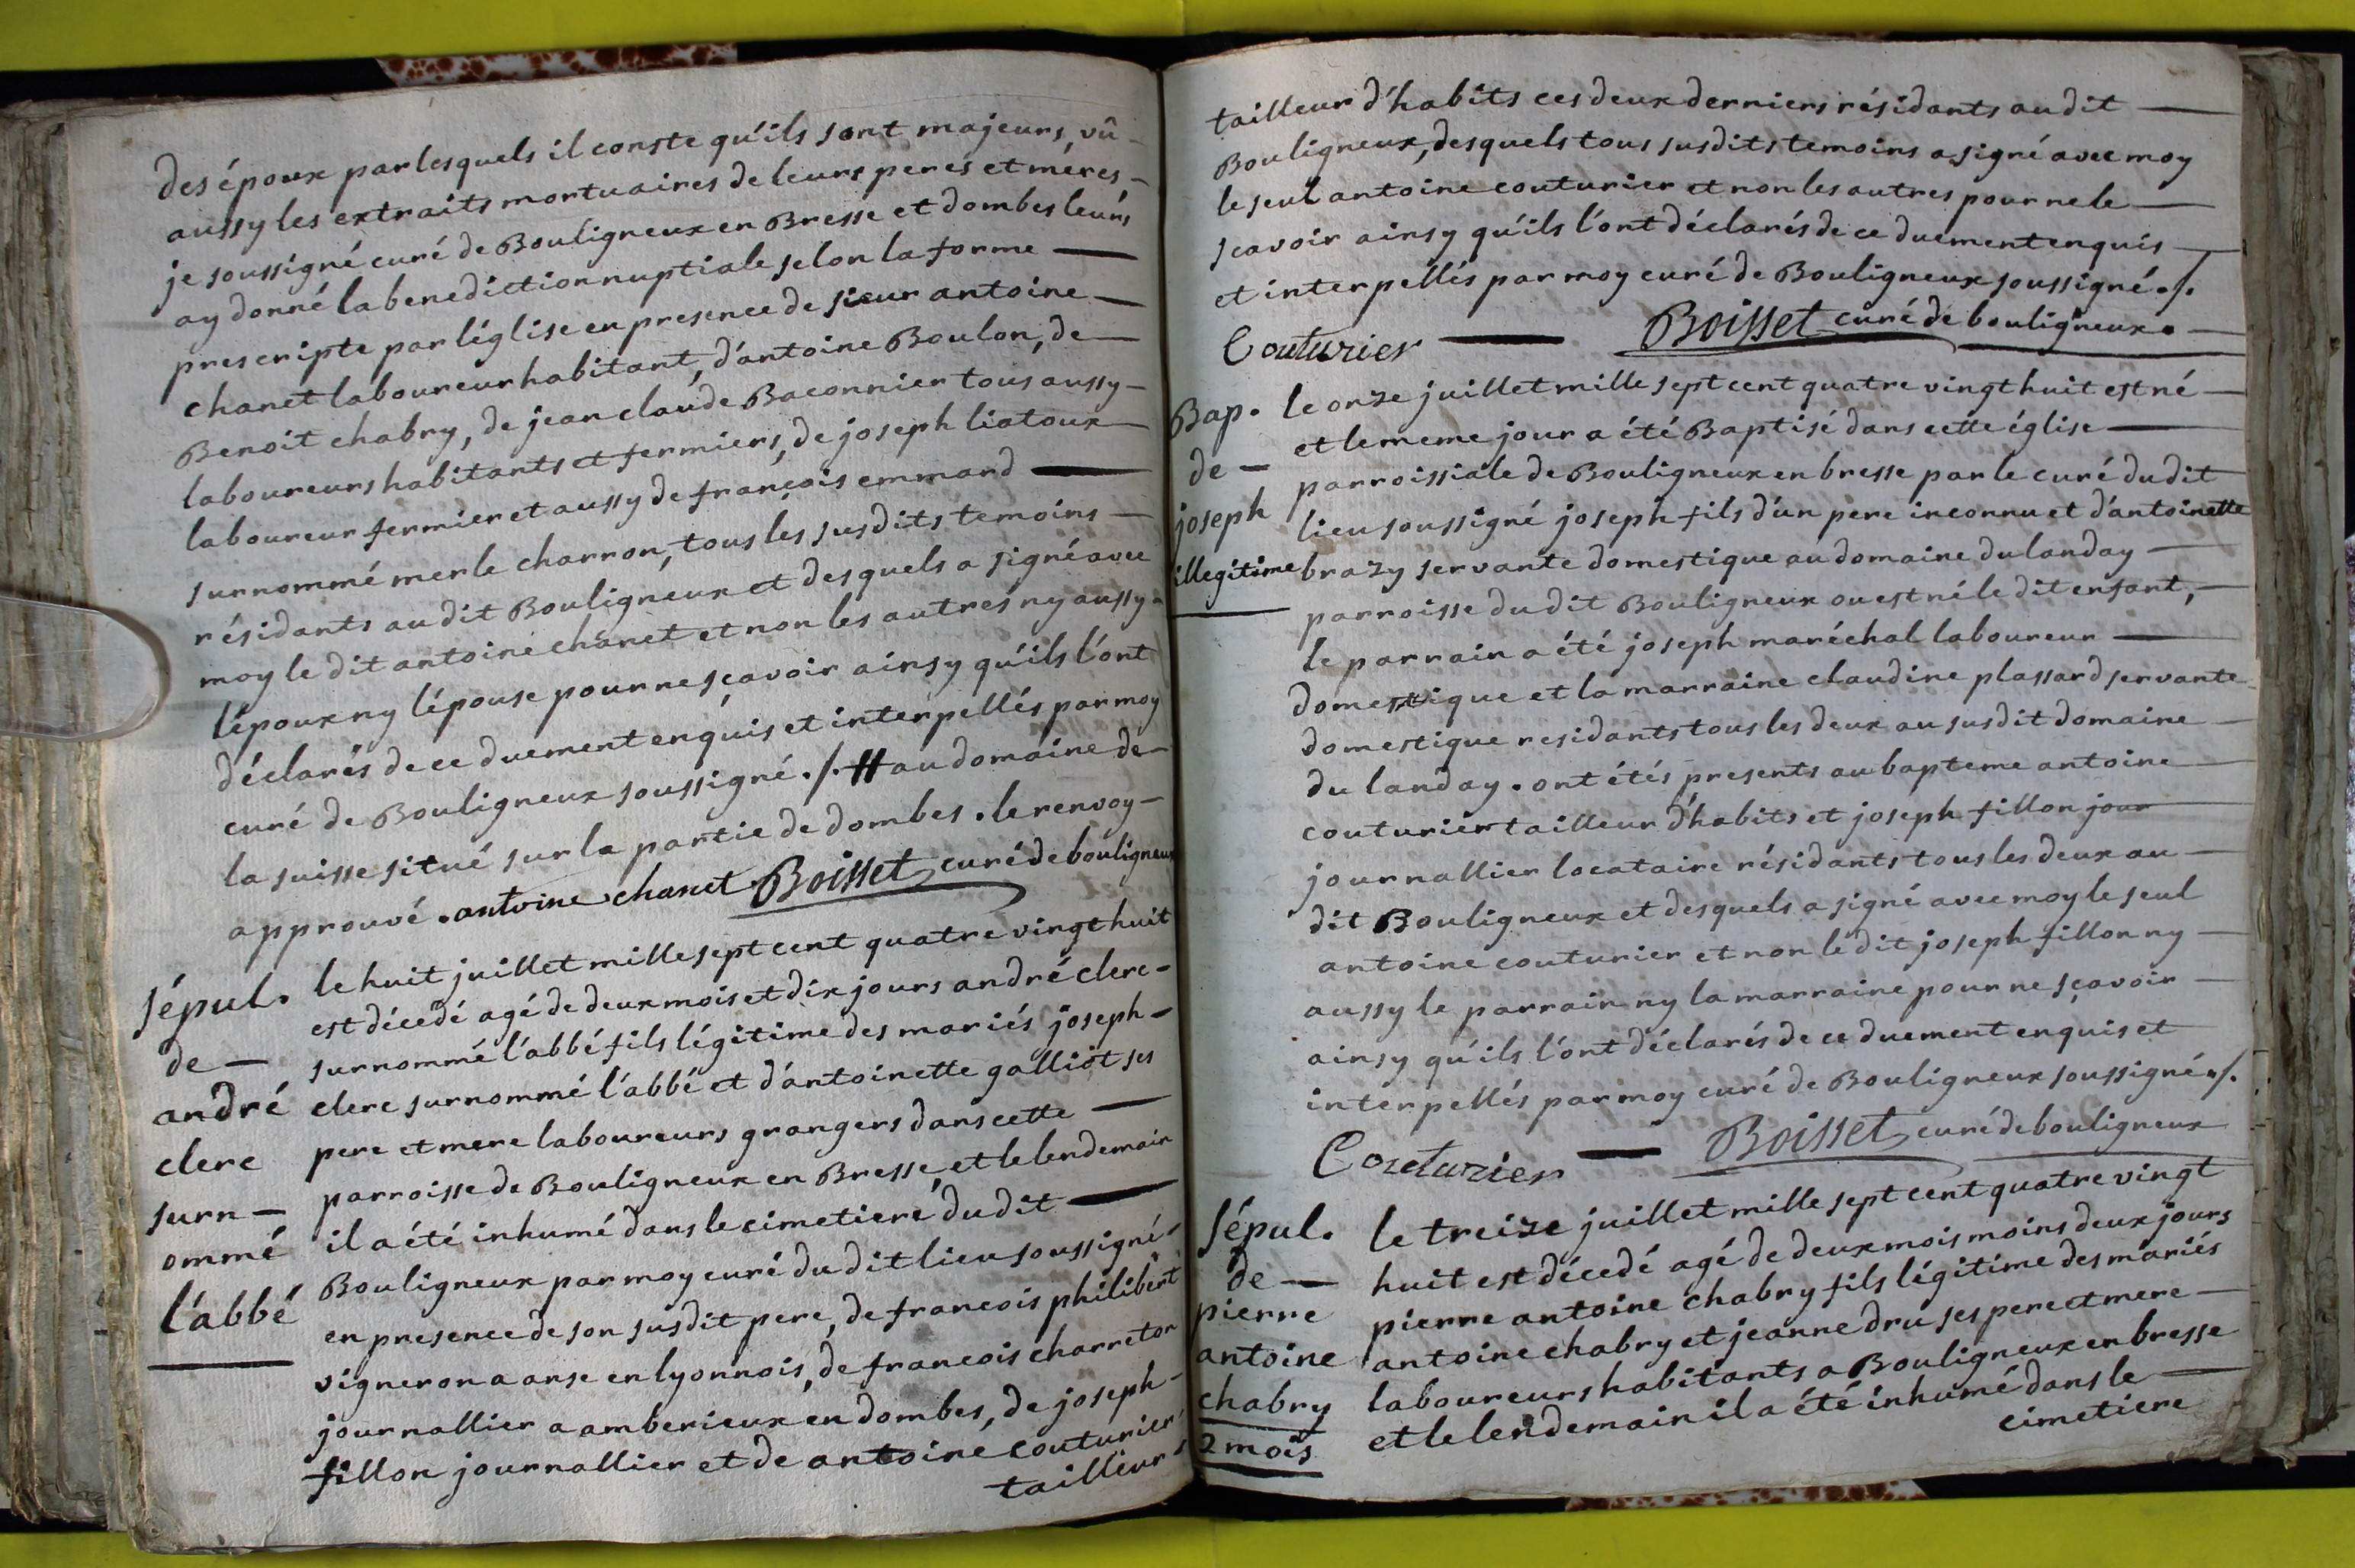 des époux par lesquels il conste qu'ils sont majeurs, vû
aussy les extraits mortuaires de leurs peres et meres
je soussigné curé de Bouligneux en Bresse et dombes leurs
ay donné la benediction nuptiale selon la forme
prescripte par léglise en presence de sieur antoine
chanet laboureur habitant, d'antoine Boulon, de
Benoit chabry, de jean claude Baconnier tous aussy
laboureurs habitants et fermiers, de joseph liatoux
laboureur fermier et aussy de françois emmard
surnommé merle charron, tous les susdits temoins
résidants au dit Bouligneux et desquels a signé avec
moy le dit antoine chanet et non les autres ny aussy
lépoux ny lépouse pour ne sçavoir ainsy qu'ils l'ont
déclarés de ce duement enquis et interpellés par moy
curé de Bouligneux soussigné ./. # au domaine de
la suisse situé sur la partie de dombes . le renvoy
approuvé . antoine chanet Boisset curé de bouligneux
sépul.
de
andré
clerc
surn-
ommé
l'abbé
le huit juillet mille sept cent quatre vingt huit
est décedé agé de deux mois et dix jours andré clerc
surnommé l'abbé fils légitime des mariés joseph
clerc surnommé l'abbé et d'antoinette galliot ses
pere et mere laboureurs grangers dans cette
parroisse de Bouligneux en Bresse, et le lendemain
il a été inhumé dans le cimetiere du dit
Bouligneux par moy curé du dit lieu soussigné
en presence de son susdit pere, de francois philibert
vigneron a anse en lyonnois, de francois charreton
journallier a amberieux en dombes, de joseph
fillon journallier et de antoine couturier
tailleur
tailleur d'habits ces deux derniers résidants au dit
Bouligneux, desquels tous susdits temoins a signé avec moy
le seul antoine couturier et non les autres pour ne le
scavoir ainsy qu'ils l'ont déclarés de ce duement enquis
et interpellés par moy curé de Bouligneux soussigné ./.
Couturier Boisset curé de bouligneux .
Bap.
de
joseph
illegitime
le onze juillet mille sept cent quatre vingt huit est né
et le meme jour a été Baptisé dans cette église
parroissiale de Bouligneux en bresse par le curé du dit
lieu soussigné joseph fils d'un pere inconnu et d'antoinette
brazy servante domestique au domaine du landay
parroisse du dit Bouligneux ou est né le dit enfant,
le parrain a été joseph maréchal laboureur
domestique et la marraine claudine plassard servante
domestique residants tous les deux au susdit domaine
du landay . ont étés presents au bapteme antoine
couturier tailleur d'habits et joseph fillon jour
journallier locataire résidants tous les deux au
dit Bouligneux et desquels a signé avec moy le seul
antoine couturier et non le dit joseph fillon ny
aussy le parrain ny la marraine pour ne sçavoir
ainsy qu'ils l'ont déclarés de ce duement enquis et
interpellés par moy curé de Bouligneux soussigné ./.
Couturier Boisset curé de bouligneux
sépul.
de
pierre
antoine
chabry
2 mois
le treize juillet mille sept cent quatre vingt
huit est décedé agé de deux mois moins deux jours
pierre antoine chabry fils légitime des mariés
antoine chabry et jeanne dru ses pere et mere
laboureurs habitants a Bouligneux en bresse
et le lendemain il a été inhumé dans le
cimetiere